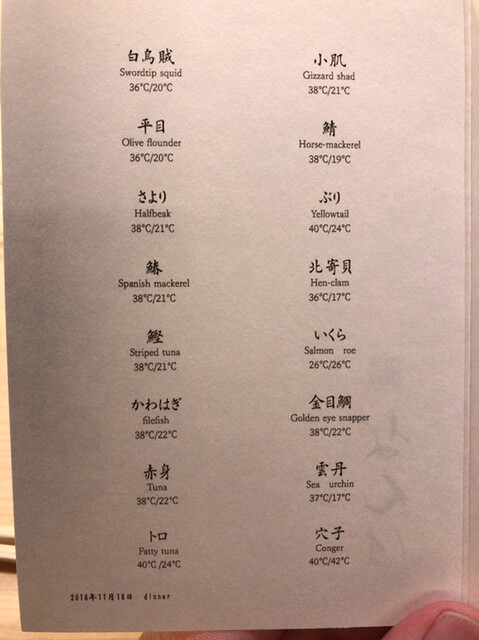 白烏賊
Swordtip squid
36℃/20℃
平目
Olive flounder
36℃/20℃
さより
Halfbeak
38℃/21℃
鰆
Spanish mackerel
38℃/21℃
鰹
Striped tuna
38℃/21℃
かわはぎ
filefish
38℃/22℃
赤身
Tuna
38℃/22℃
トロ
Fatty tuna
40℃/24℃
小肌
Gizzard shad
38℃/21℃
鯖
Horse-mackerel
38℃/19℃
ぶり
Yellowtail
40℃/24℃
北寄貝
Hen-clam
36℃/17℃
いくら
Salmon roe
26℃/26℃
金目鯛
Golden eye snapper
38℃/22℃
雲丹
Sea urchin
37℃/17℃
穴子
Conger
40℃/42℃
2018年11月18日 dinner